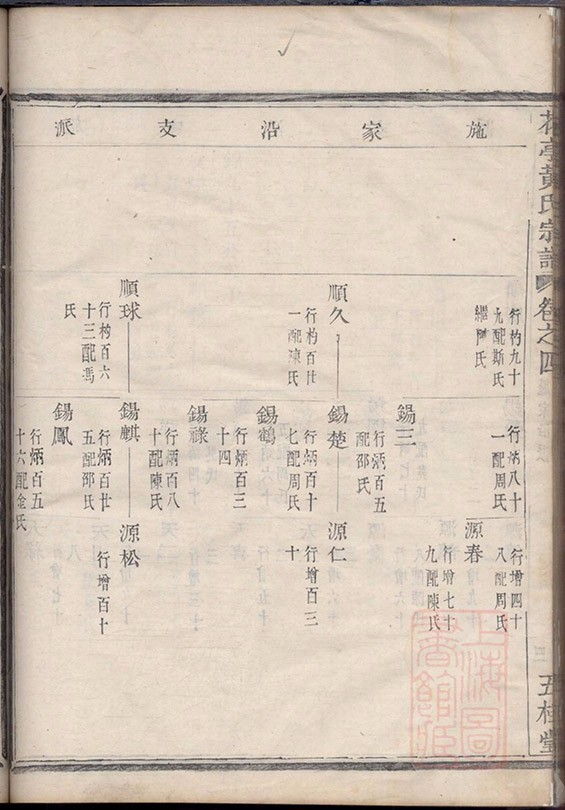 花亭黃氏宗譜 卷之四
五桂堂
施家沿支派
行杓九十
九配斯氏
繼陳氏
順久
行杓百廿
一配陳氏
順球
行杓百六
十三配馮
氏
行炳八十
一配周氏
錫三
行炳百五
配邵氏
錫楚
行炳百十
七配周氏
錫鶴
行炳百三
十四
錫祿
行炳百八
十配陳氏
錫麒
行炳百廿
五配邵氏
錫鳳
行炳百五
十六配金氏
行增四十
八配周氏
源春
行增七十
九配陳氏
源仁
行增百三
十
源松
行增百十
上海圖
書館藏